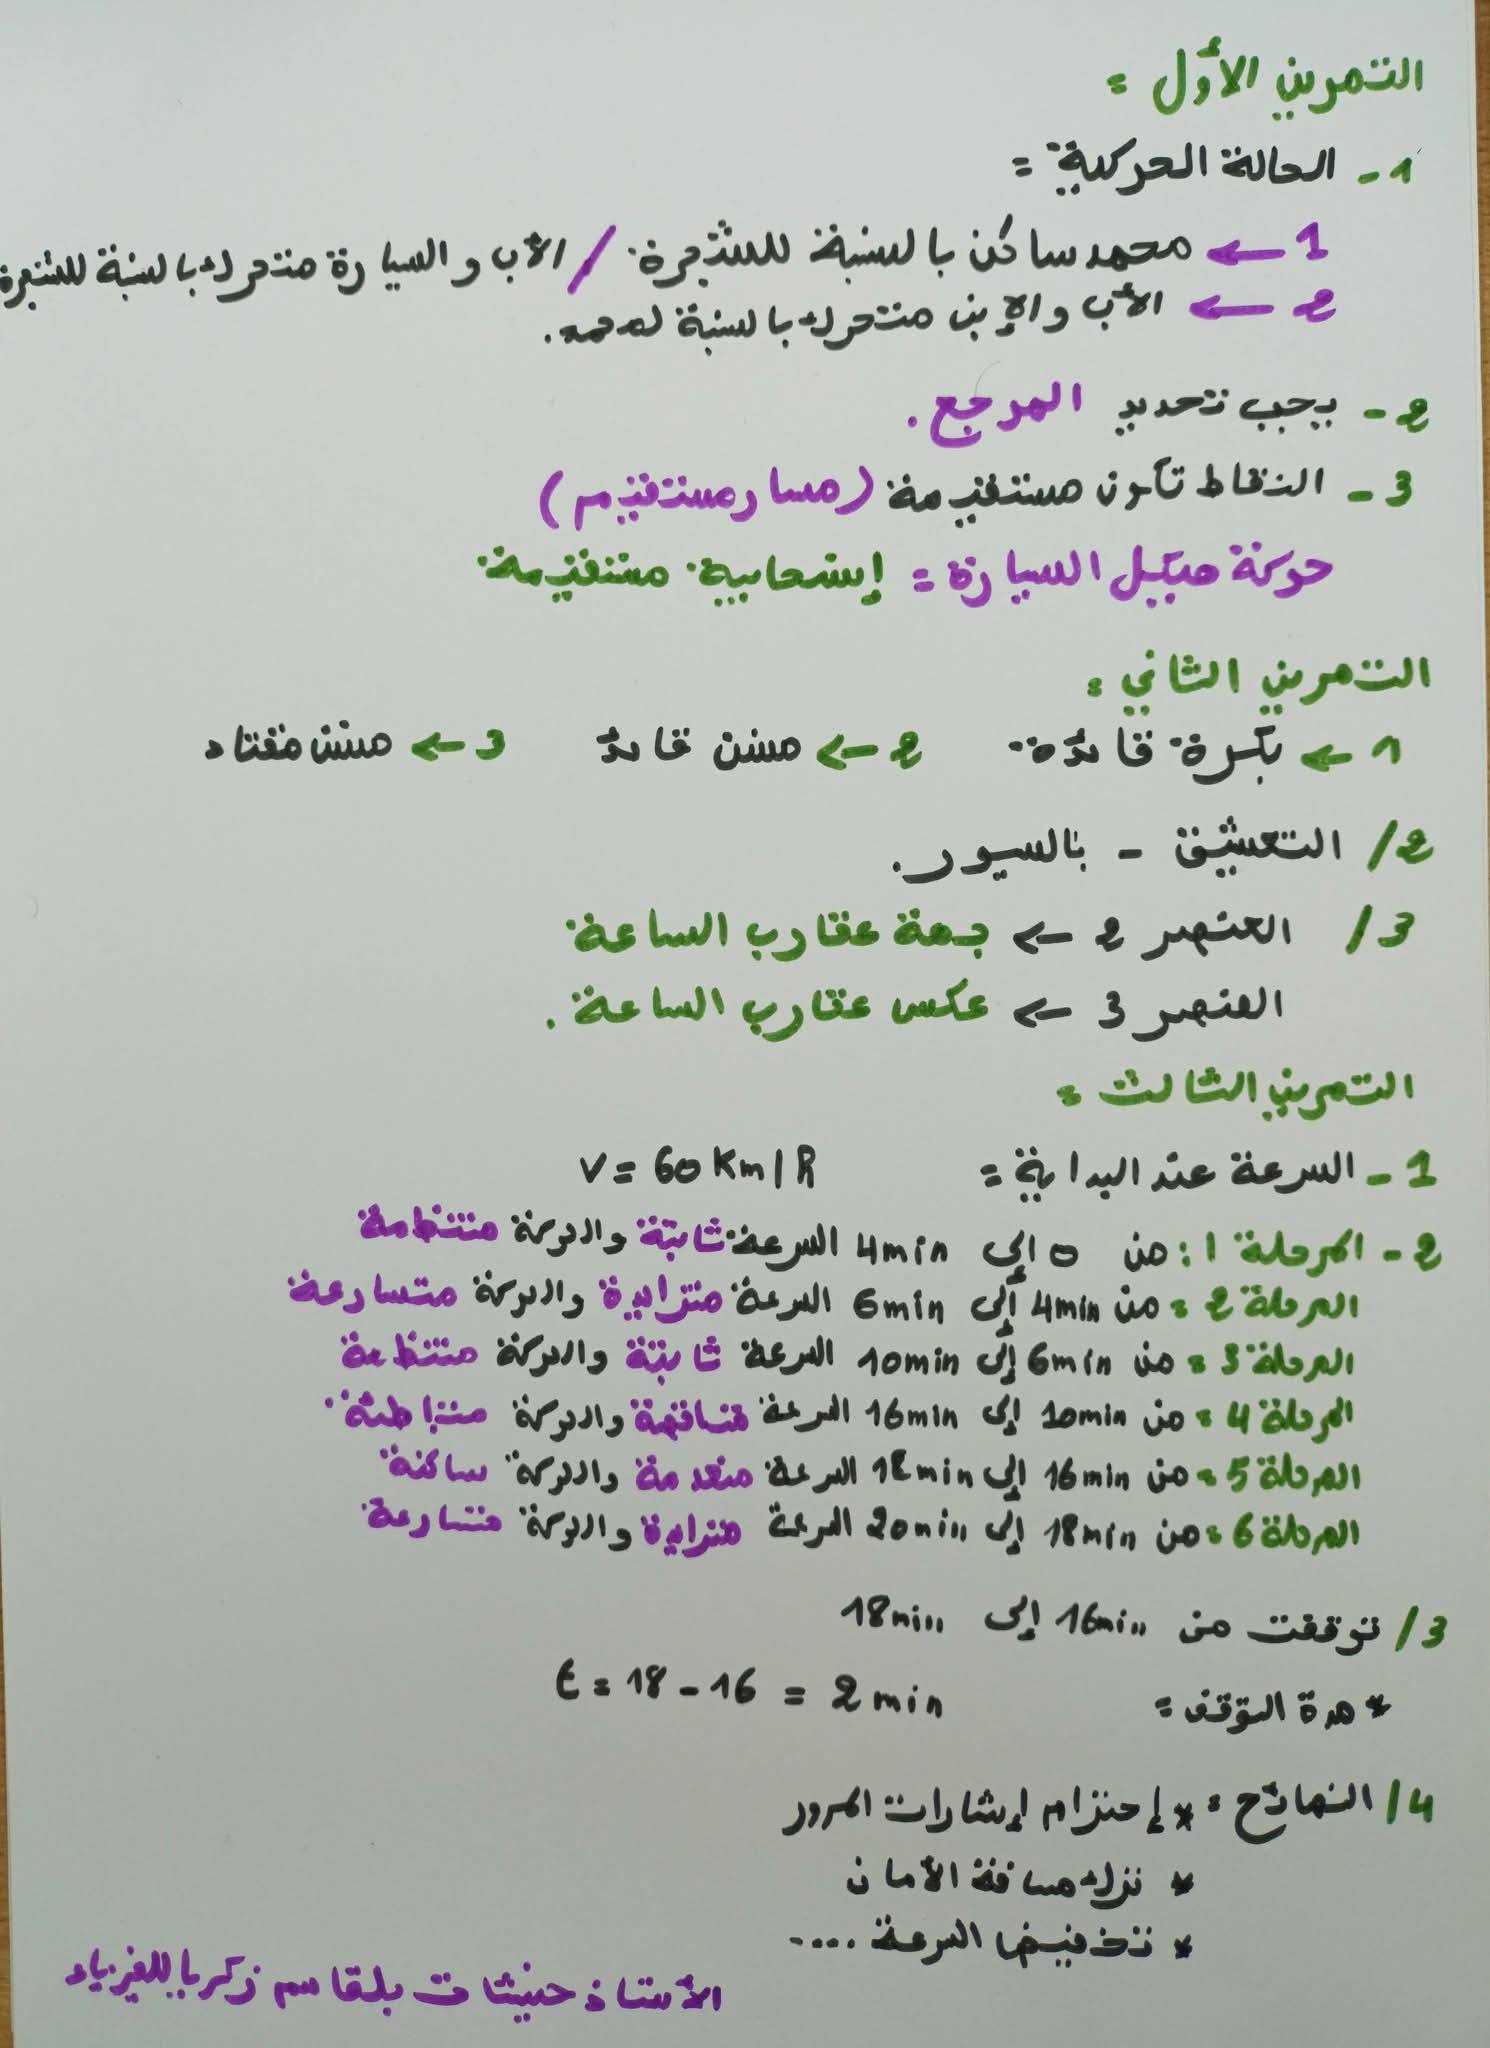 التمرين الأول :
1- الحالة الحركية :
1 ← محمد ساكن بالنسبة للشجرة / الأب والسيارة متحرك بالنسبة للشجرة
2 ← الأب والإبن متحرك بالنسبة لمحمد.
2- يجب تحديد المرجع .
3- النقاط تكون مستقيمة (مسار مستقيم)
حركة هيكل السيارة : إنسحابية مستقيمة
التمرين الثاني :
1 ← بكرة قائدة 2 ← مسنن قائد 3 ← مسنن مقتاد
2/ التعشيق - بالسيور.
3/ العنصر 2 ← جهة عقارب الساعة
العنصر 3 ← عكس عقارب الساعة .
التمرين الثالث :
1- السرعة عند البداية : V = 60 Km/h
2- المرحلة 1 : من 0 إلى 4min السرعة ثابتة والحركة منتظمة
المرحلة 2 : من 4min إلى 6min السرعة متزايدة والحركة متسارعة
المرحلة 3 : من 6min إلى 10min السرعة ثابتة والحركة منتظمة
المرحلة 4 : من 10min إلى 16min السرعة متناقصة والحركة متباطئة
المرحلة 5 : من 16min إلى 18min السرعة منعدمة والحركة ساكنة
المرحلة 6 : من 18min إلى 20min السرعة متزايدة والحركة متسارعة
3/ توقفت من 16min إلى 18min
* مدة التوقف : t = 18 - 16 = 2 min
4/ النصائح : * إحترام إشارات المرور
* ترك مسافة الأمان
* تخفيض السرعة ....
الأستاذ حنيشات بلقاسم زكرياء للفيزياء